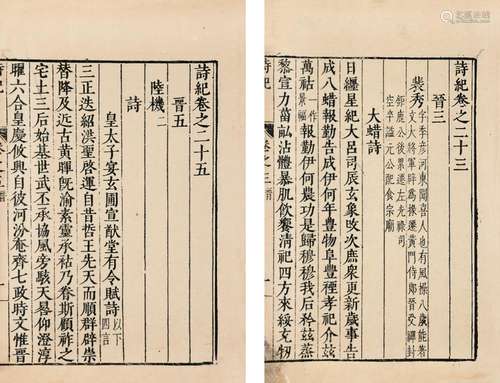 詩紀卷之二十三
晉三
裴秀 字季彥河東聞喜人也有風操八歲能著
文大將軍辟爲掾遷黃門侍郎晉受禪封
鉅鹿公後累遷左光祿司
空卒謚元公配食宗廟
大蜡詩
日纏星紀大呂司辰玄象改次庶衆更新歲事告
成八蜡報勤告成伊何年豐物阜豐禋孝祀介茲
萬祜一作福報勤伊何農功是歸穆穆我后矜茲蒸
黎宣力菑畝沾體暴肌飲饗清祀四方來綏充牣
詩紀
詩紀卷之二十五
晉五
陸機二
詩
皇太子宴玄圃宣猷堂有令賦詩以下四言
三正迭紹洪聖啓運自昔哲王先天而順群辟崇
替降及近古黃暉旣渝素靈承祜乃眷斯顧祚之
宅土三后始基世武丕承協風旁駭天晷仰澄淳
曜六合皇慶攸興自彼河汾奄齊七政時文惟晉
詩紀